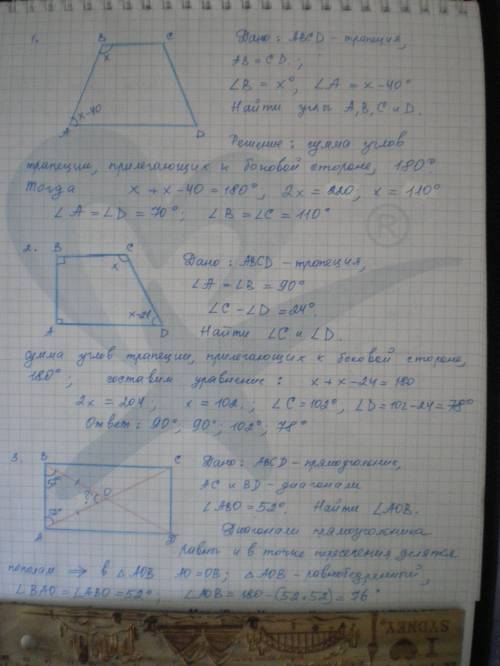 1.
B C
x
x-40
A D
Дано: ABCD – трапеция,
AB = CD.;
∠B = x°, ∠A = x-40°
Найти углы A, B, C и D.
Решение: сумма углов
трапеции, прилегающих к боковой стороне, 180°.
Тогда x + x - 40 = 180°, 2x = 220, x = 110°
∠A = ∠D = 70°; ∠B = ∠C = 110°
2.
B C
x
x-24
A D
Дано: ABCD – трапеция,
∠A = ∠B = 90°
∠C - ∠D = 24°.
Найти ∠C и ∠D.
сумма углов трапеции, прилегающих к боковой стороне,
180°; составим уравнение: x + x - 24 = 180
2x = 204, x = 102. ∠C = 102°, ∠D = 102 - 24 = 78°
Ответ: 90°; 90°; 102°; 78°
3.
B C
52°
? O
52°
A D
Дано: ABCD – прямоугольник,
AC и BD – диагонали
∠ABO = 52°. Найти ∠AOB.
Диагонали прямоугольника
равны и в точке пересечения делятся
пополам ⇒ в △AOB AO = OB; △AOB – равнобедренный,
∠BAO = ∠ABO = 52°, ∠AOB = 180 - (52+52) = 76°
®
SYDNEY